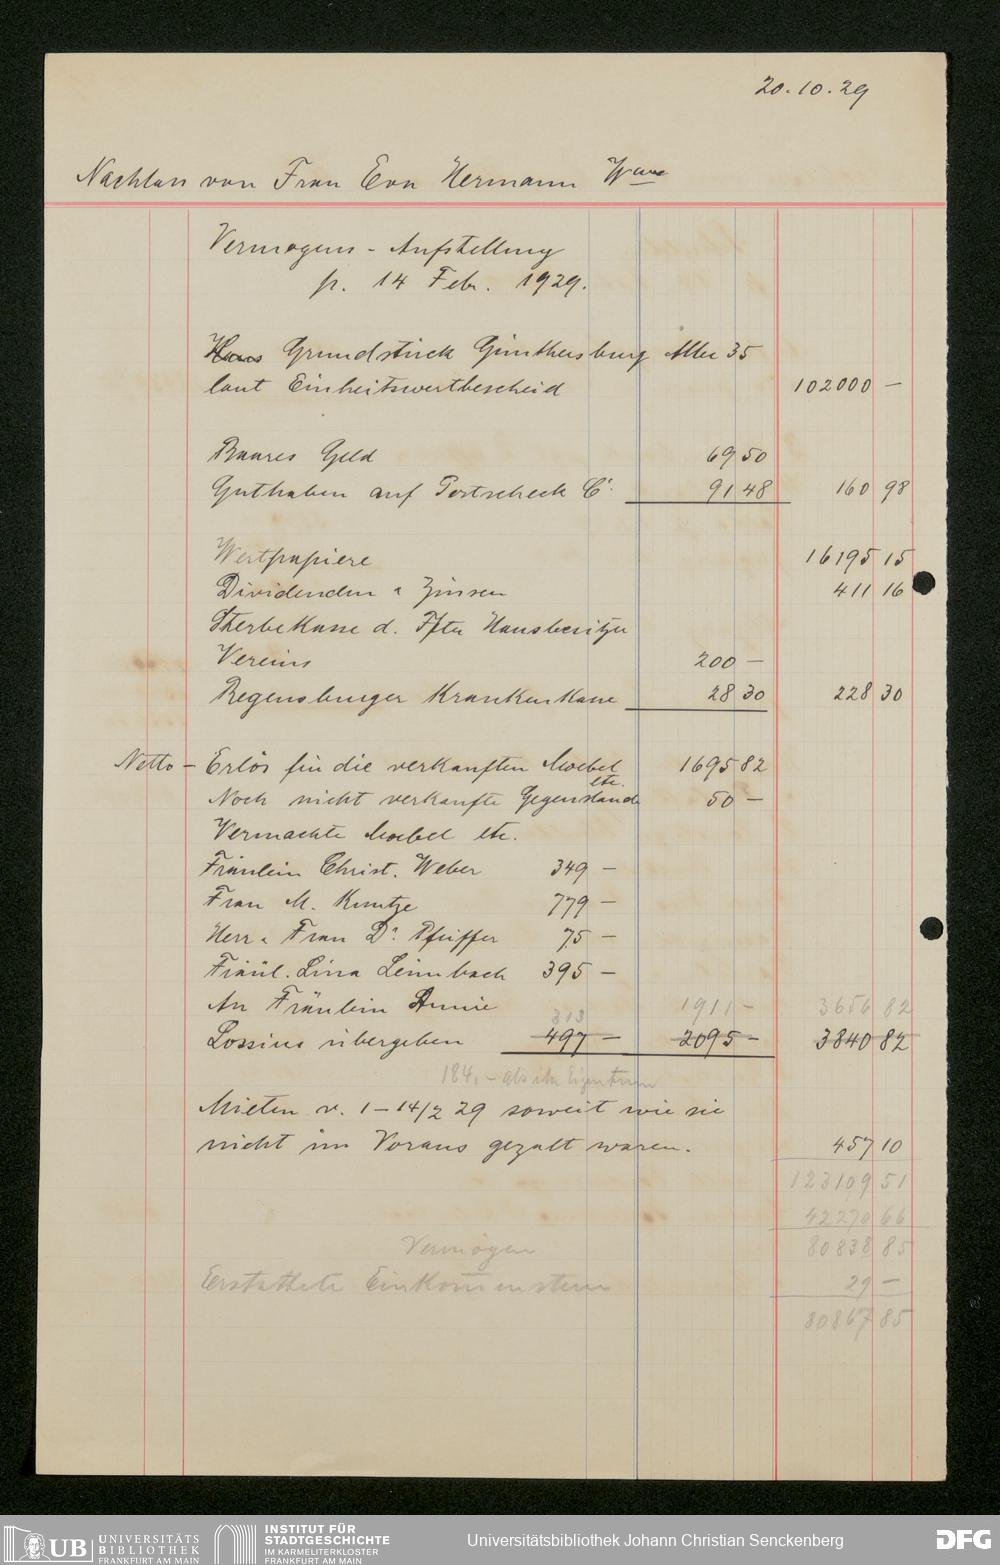 20.10.29
Nachlass von Frau Eva Hermann Wwe
Vermogens - Aufstellung
p. 14 Febr. 1929.
Haus Grundstück Günthersburg Allee 35
laut Einheitswertbescheid 102000 —
Baares Geld 69 50
Guthaben auf Postscheck C. 91 48 160 98
Wertpapiere 16195 15
Dividenden u Zinsen 411 16
Sterbekasse d. Ffter Hausbesitzer
Vereins 200 —
Regensburger Krankenkasse 28 30 228 30
Netto - Erlös für die verkauften Moebel 1695 82
etc.
Noch nicht verkaufte Gegenstände 50 —
Vermachte Moebel etc.
Fräulein Christ. Weber 349 —
Frau M. Kuntze 779 —
Herr u Frau Dr. Pfeiffer 75 —
Fräul. Lina Leimbach 395 —
An Fräulein Annie 1911 — 3656 82
313
Lossius übergeben 497 — 2095 — 3840 82
184,- als ihr Eigentum
Mieten v. 1 – 14/2 29 soweit wie sie
nicht im Voraus gezalt waren. 457 10
123109 51
42270 66
Vermögen 80838 85
Erstattete Einkommensteuer 29 —
80867 85
UB UNIVERSITÄTS
BIBLIOTHEK
FRANKFURT AM MAIN
INSTITUT FÜR
STADTGESCHICHTE
IM KARMELITERKLOSTER
FRANKFURT AM MAIN
Universitätsbibliothek Johann Christian Senckenberg
DFG